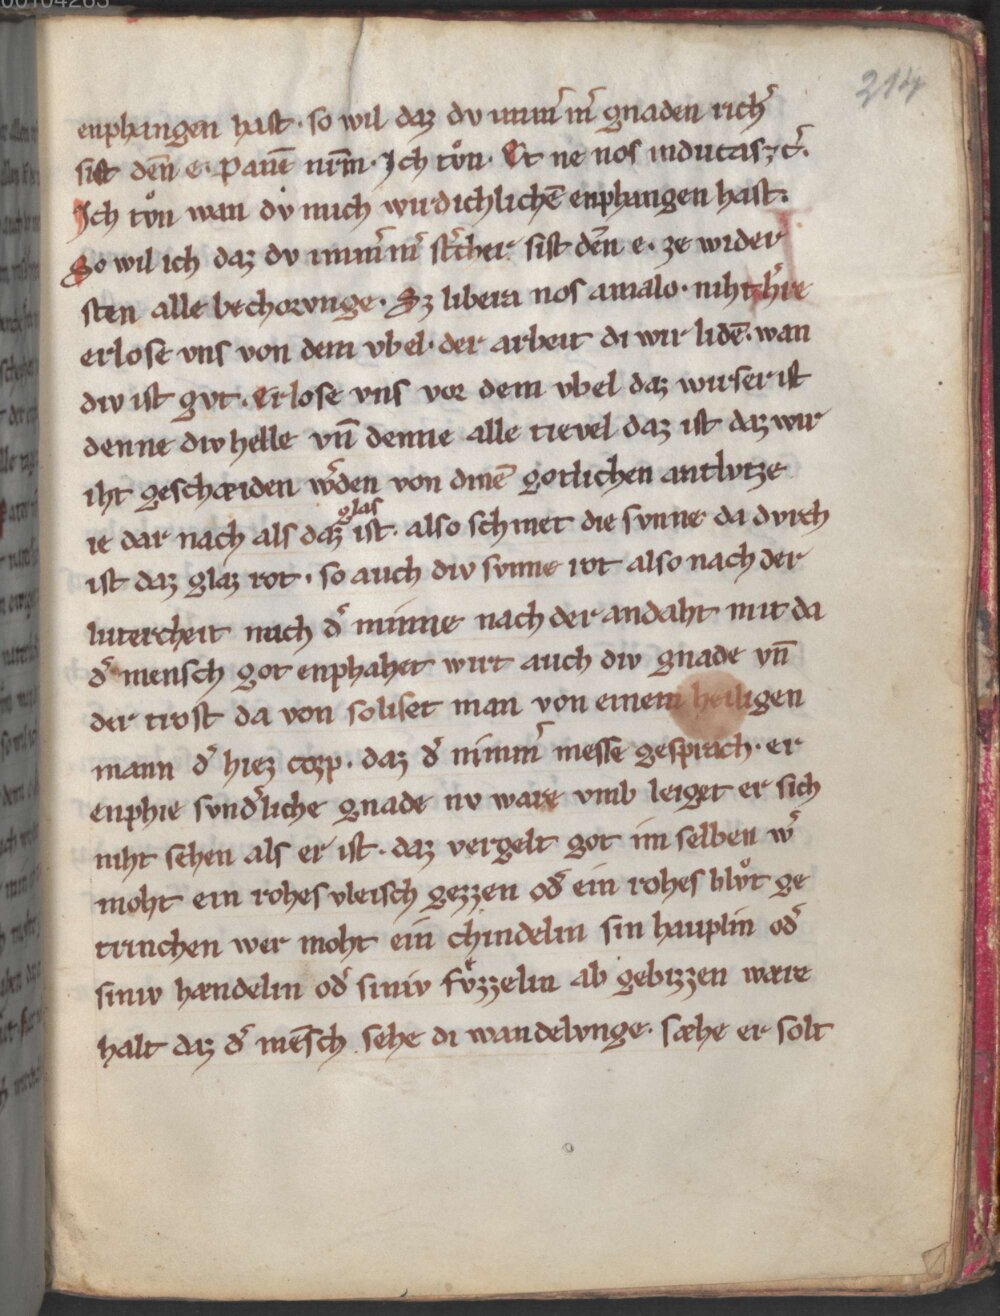 214
enphangen hast · so wil daz dv imm̄ m̄ gnaden rich͛
sist den̄ e · Panē nr̄m · Ich tv̊n · Et ne nos inducas ⁊ c̄ ·
Ich tv̊n wan dv̊ mich wirdichlichē enphangen hast ·
So wil ich daz dv imm͛ m͛ st͛cher sist den̄ e · ze wider
sten alle bechorvnge · Sz libera nos amalo · niht h͛re
erlose vns von dem vbel · der arbeit di wir lidē · wan
div ist gvt · Erlose vns vor dem vbel daz wirser ist
denne div helle vn̄ denne alle tievel daz ist daz wir
iht geschæiden w͛den von dinē gotlichen antlvtze
ie dar nach als daz glas ist · also schinet die svnne da dvrch
ist daz glaz rot · so auch div svnne rot also nach der
lutercheit nach d͛ minne nach der andaht mit da
d͛ mensch got enphahet wirt auch div gnade vn̄
der trost da von soliset man von einem heiligen
mann d͛ hiez corp · daz d͛ nimm͛ messe gesprach · er
enphie svnd͛liche gnade nv ware vmb leiget er sich
niht sehen als er ist · daz vergelt got im selben w͛
moht ein rohes vleisch gezzen od͛ ein rohes blv̊t ge
trinchen wer moht ein chindelin sin hauplin od͛
siniv hændelin od͛ siniv fv̊zzelin ab gebizzen wære
halt daz d͛ mēsch sehe di wandelvnge · sæhe er solt